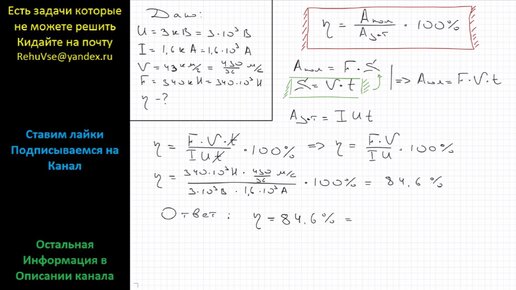 Есть задачи которые
не можете решить
Кидайте на почту
RehuVse@yandex.ru
Ставим лайки
Подписываемся на
Канал
Остальная
Информация в
Описании канала
Дано:
U = 3 кВ = 3·10³ В
I = 1,6 кА = 1,6·10³ А
V = 43 км/ч = 430/36 м/с
F = 340 кН = 340·10³ Н
η - ?
η = Aпол/Aзат · 100%
Aпол = F · S
S = V · t
=> Aпол = F·V·t
Aзат = I U t
η = F·V·t/I U t · 100% => η = F·V/I U · 100%
η = 340·10³ Н · 430/36 м/с / 3·10³ В · 1,6·10³ А · 100% = 84,6%
Ответ: η = 84,6% =